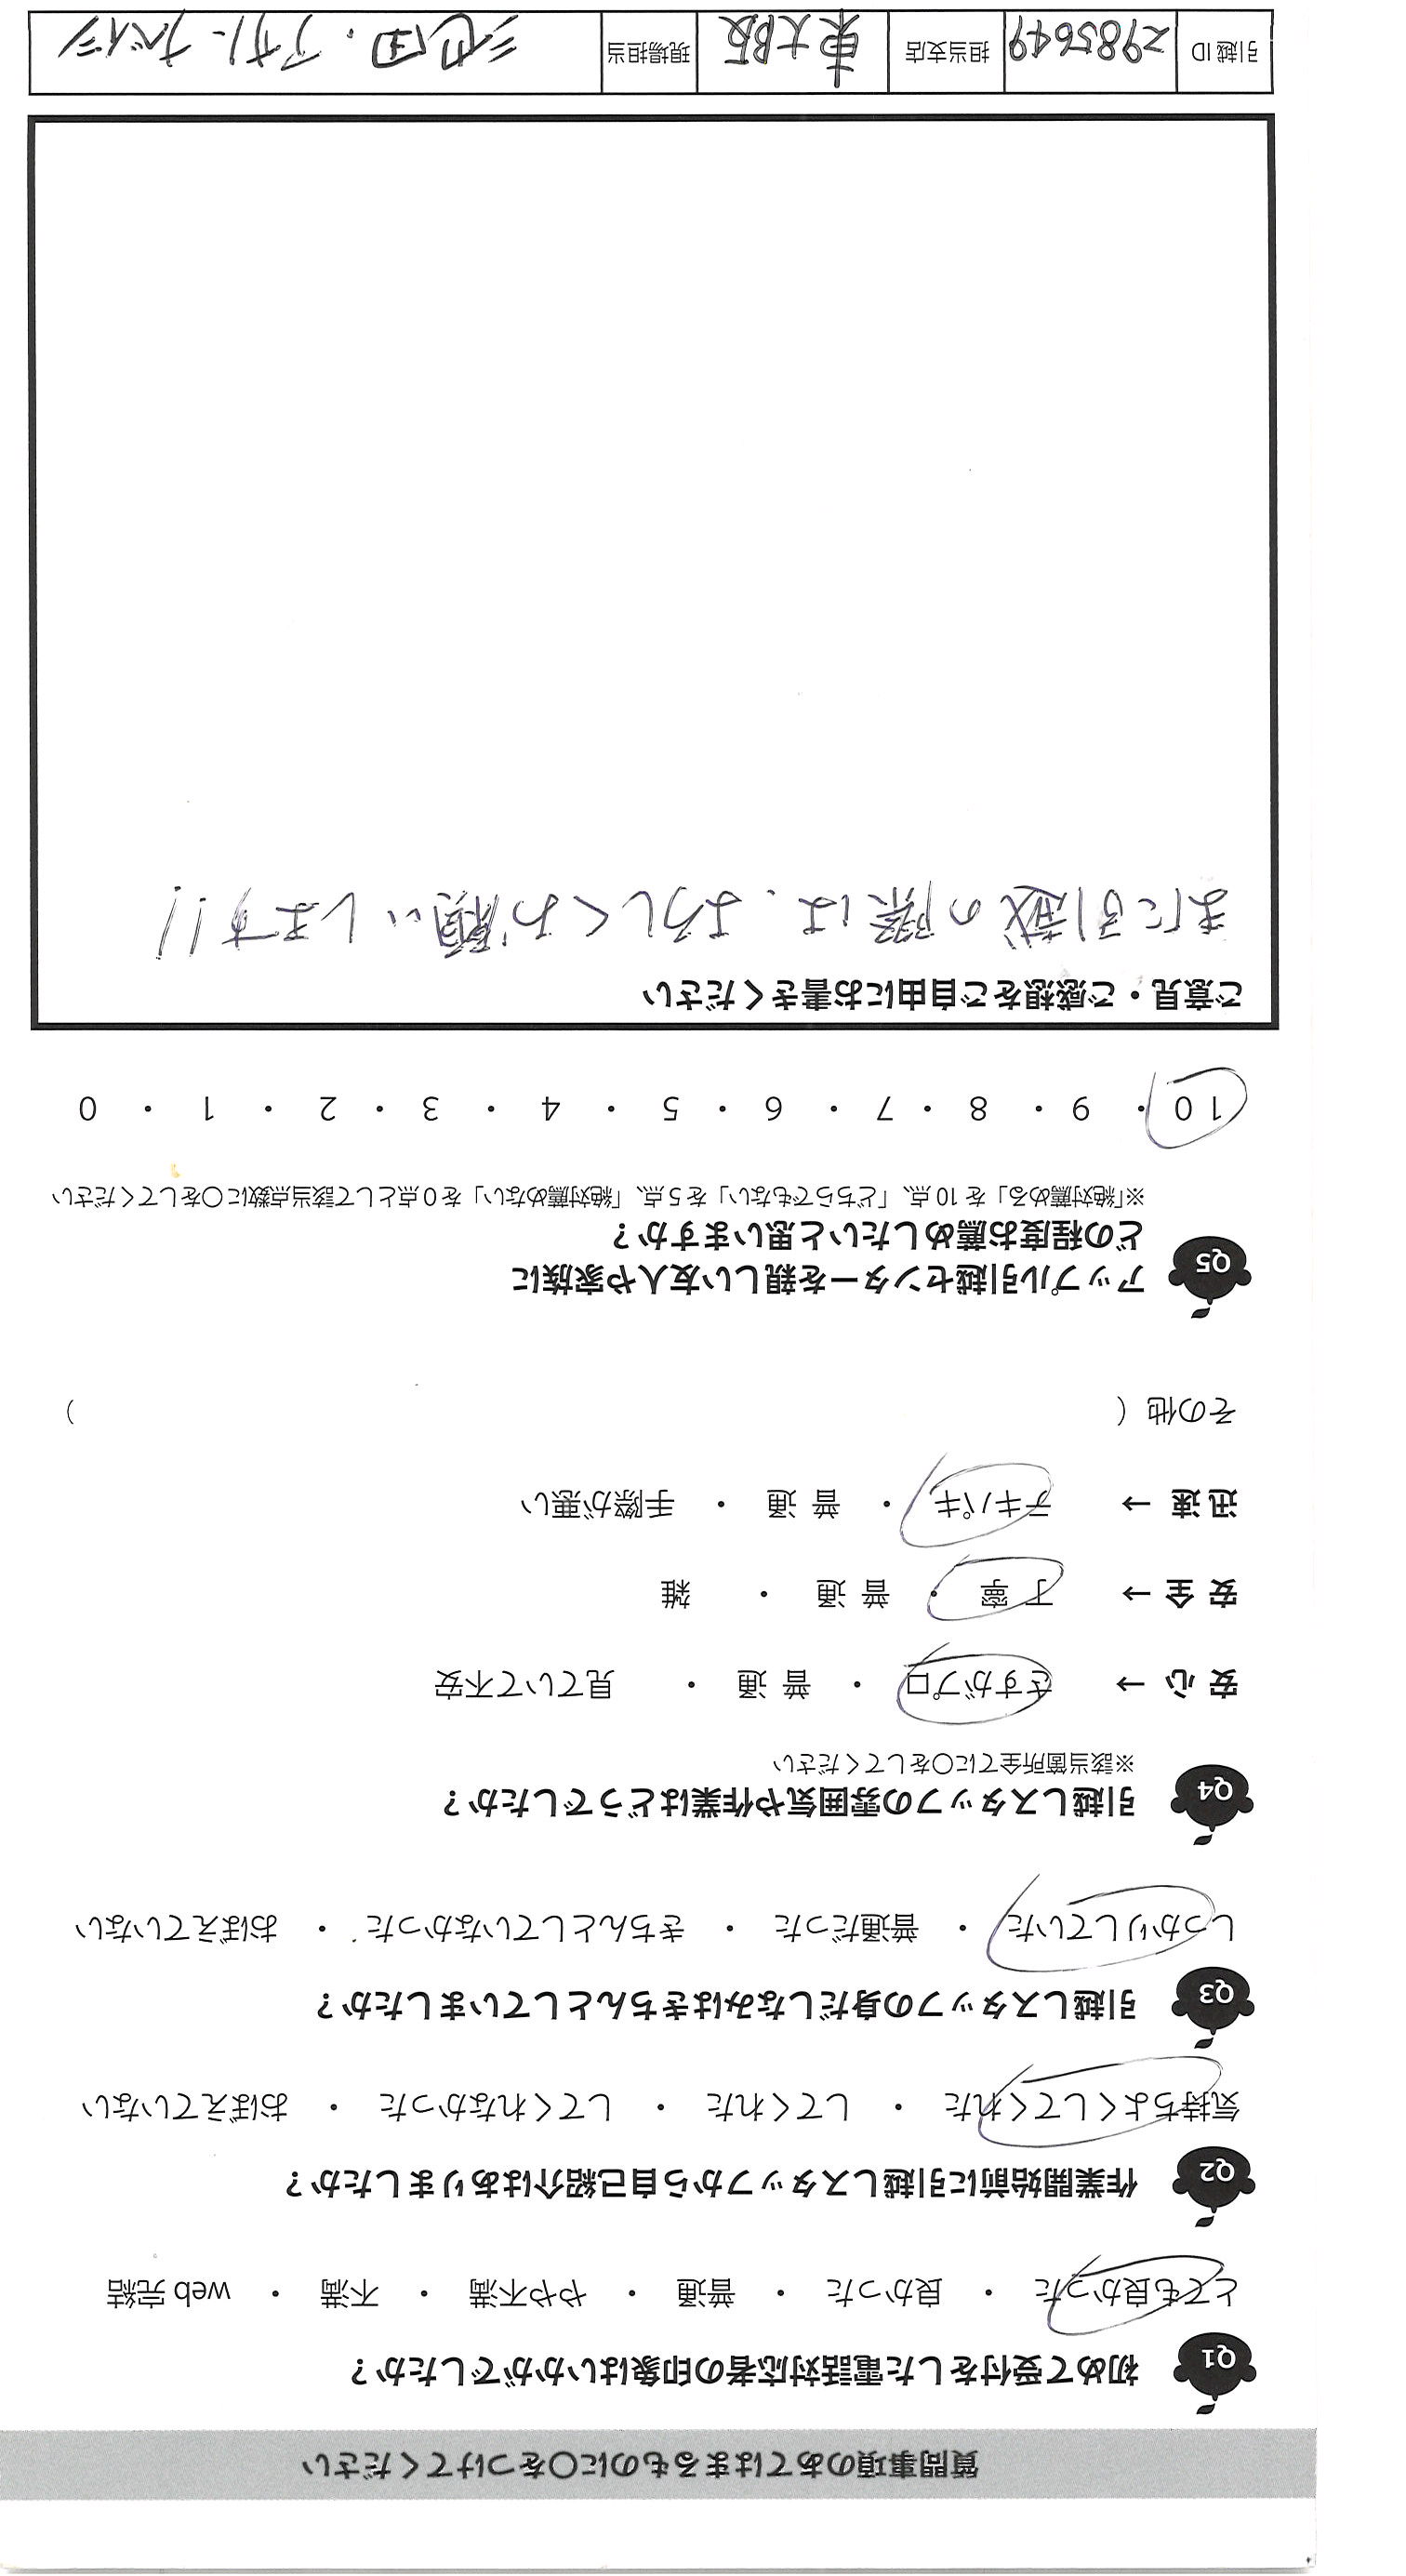 質問事項のあてはまるものに〇をつけてください
Q1 初めて受付をした電話対応者の印象はいかがでしたか？
とても良かった ・ 良かった ・ 普通 ・ やや不満 ・ 不満 ・ web 完結
Q2 作業開始前に引越しスタッフから自己紹介はありましたか？
気持ちよくしてくれた ・ してくれた ・ してくれなかった ・ おぼえていない
Q3 引越しスタッフの身だしなみはきちんとしていましたか？
しっかりしていた ・ 普通だった ・ きちんとしていなかった ・ おぼえていない
Q4 引越しスタッフの雰囲気や作業はどうでしたか？
※該当箇所全てに〇をしてください
安 心 → さすがプロ ・ 普 通 ・ 見ていて不安
安 全 → 丁 寧 ・ 普 通 ・ 雑
迅 速 → テキパキ ・ 普 通 ・ 手際が悪い
その他（ ）
Q5 アップル引越センターを親しい友人や家族に
どの程度お薦めしたいと思いますか？
※「絶対薦める」を 10 点、「どちらでもない」を 5 点、「絶対薦めない」を 0 点として該当点数に〇をしてください
10 ・ 9 ・ 8 ・ 7 ・ 6 ・ 5 ・ 4 ・ 3 ・ 2 ・ 1 ・ 0
ご意見・ご感想をご自由にお書きください
またに引越の際は、よろしくお願いします!!
引越 ID 2985649 担当支店 東大阪 現場担当